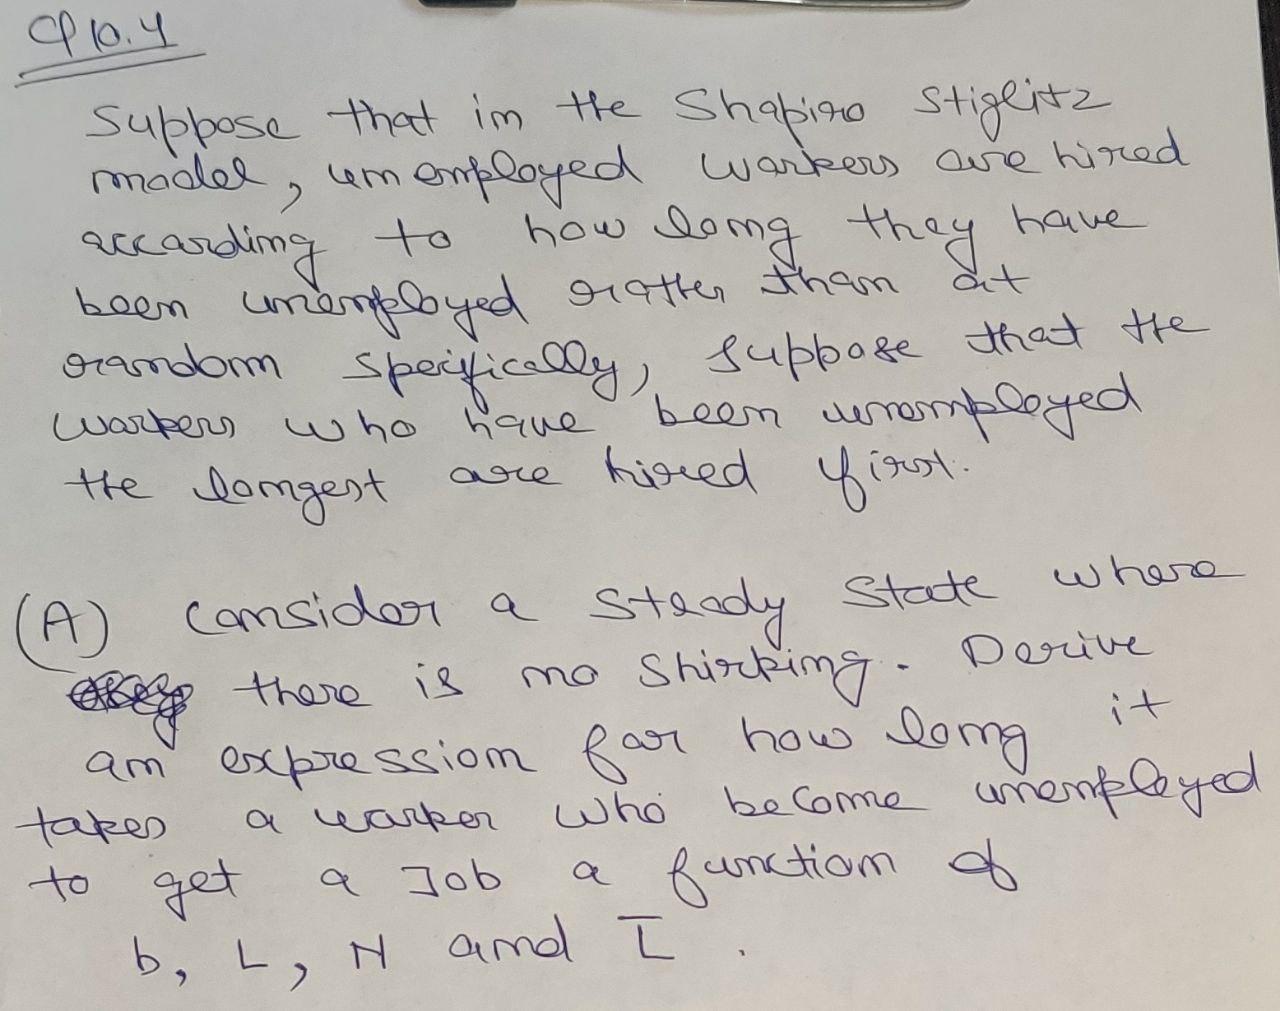 Q 10.4
Suppose that in the Shapiro Stiglitz
model, unemployed workers are hired
according to how long they have
been unemployed rather than at
random specifically, suppose that the
workers who have been unemployed
the longest are hired first.
(A) Consider a steady state where
there is no shirking. Derive
an expression for how long it
takes a worker who become unemployed
to get a Job a function of
b, L, N and L̅.